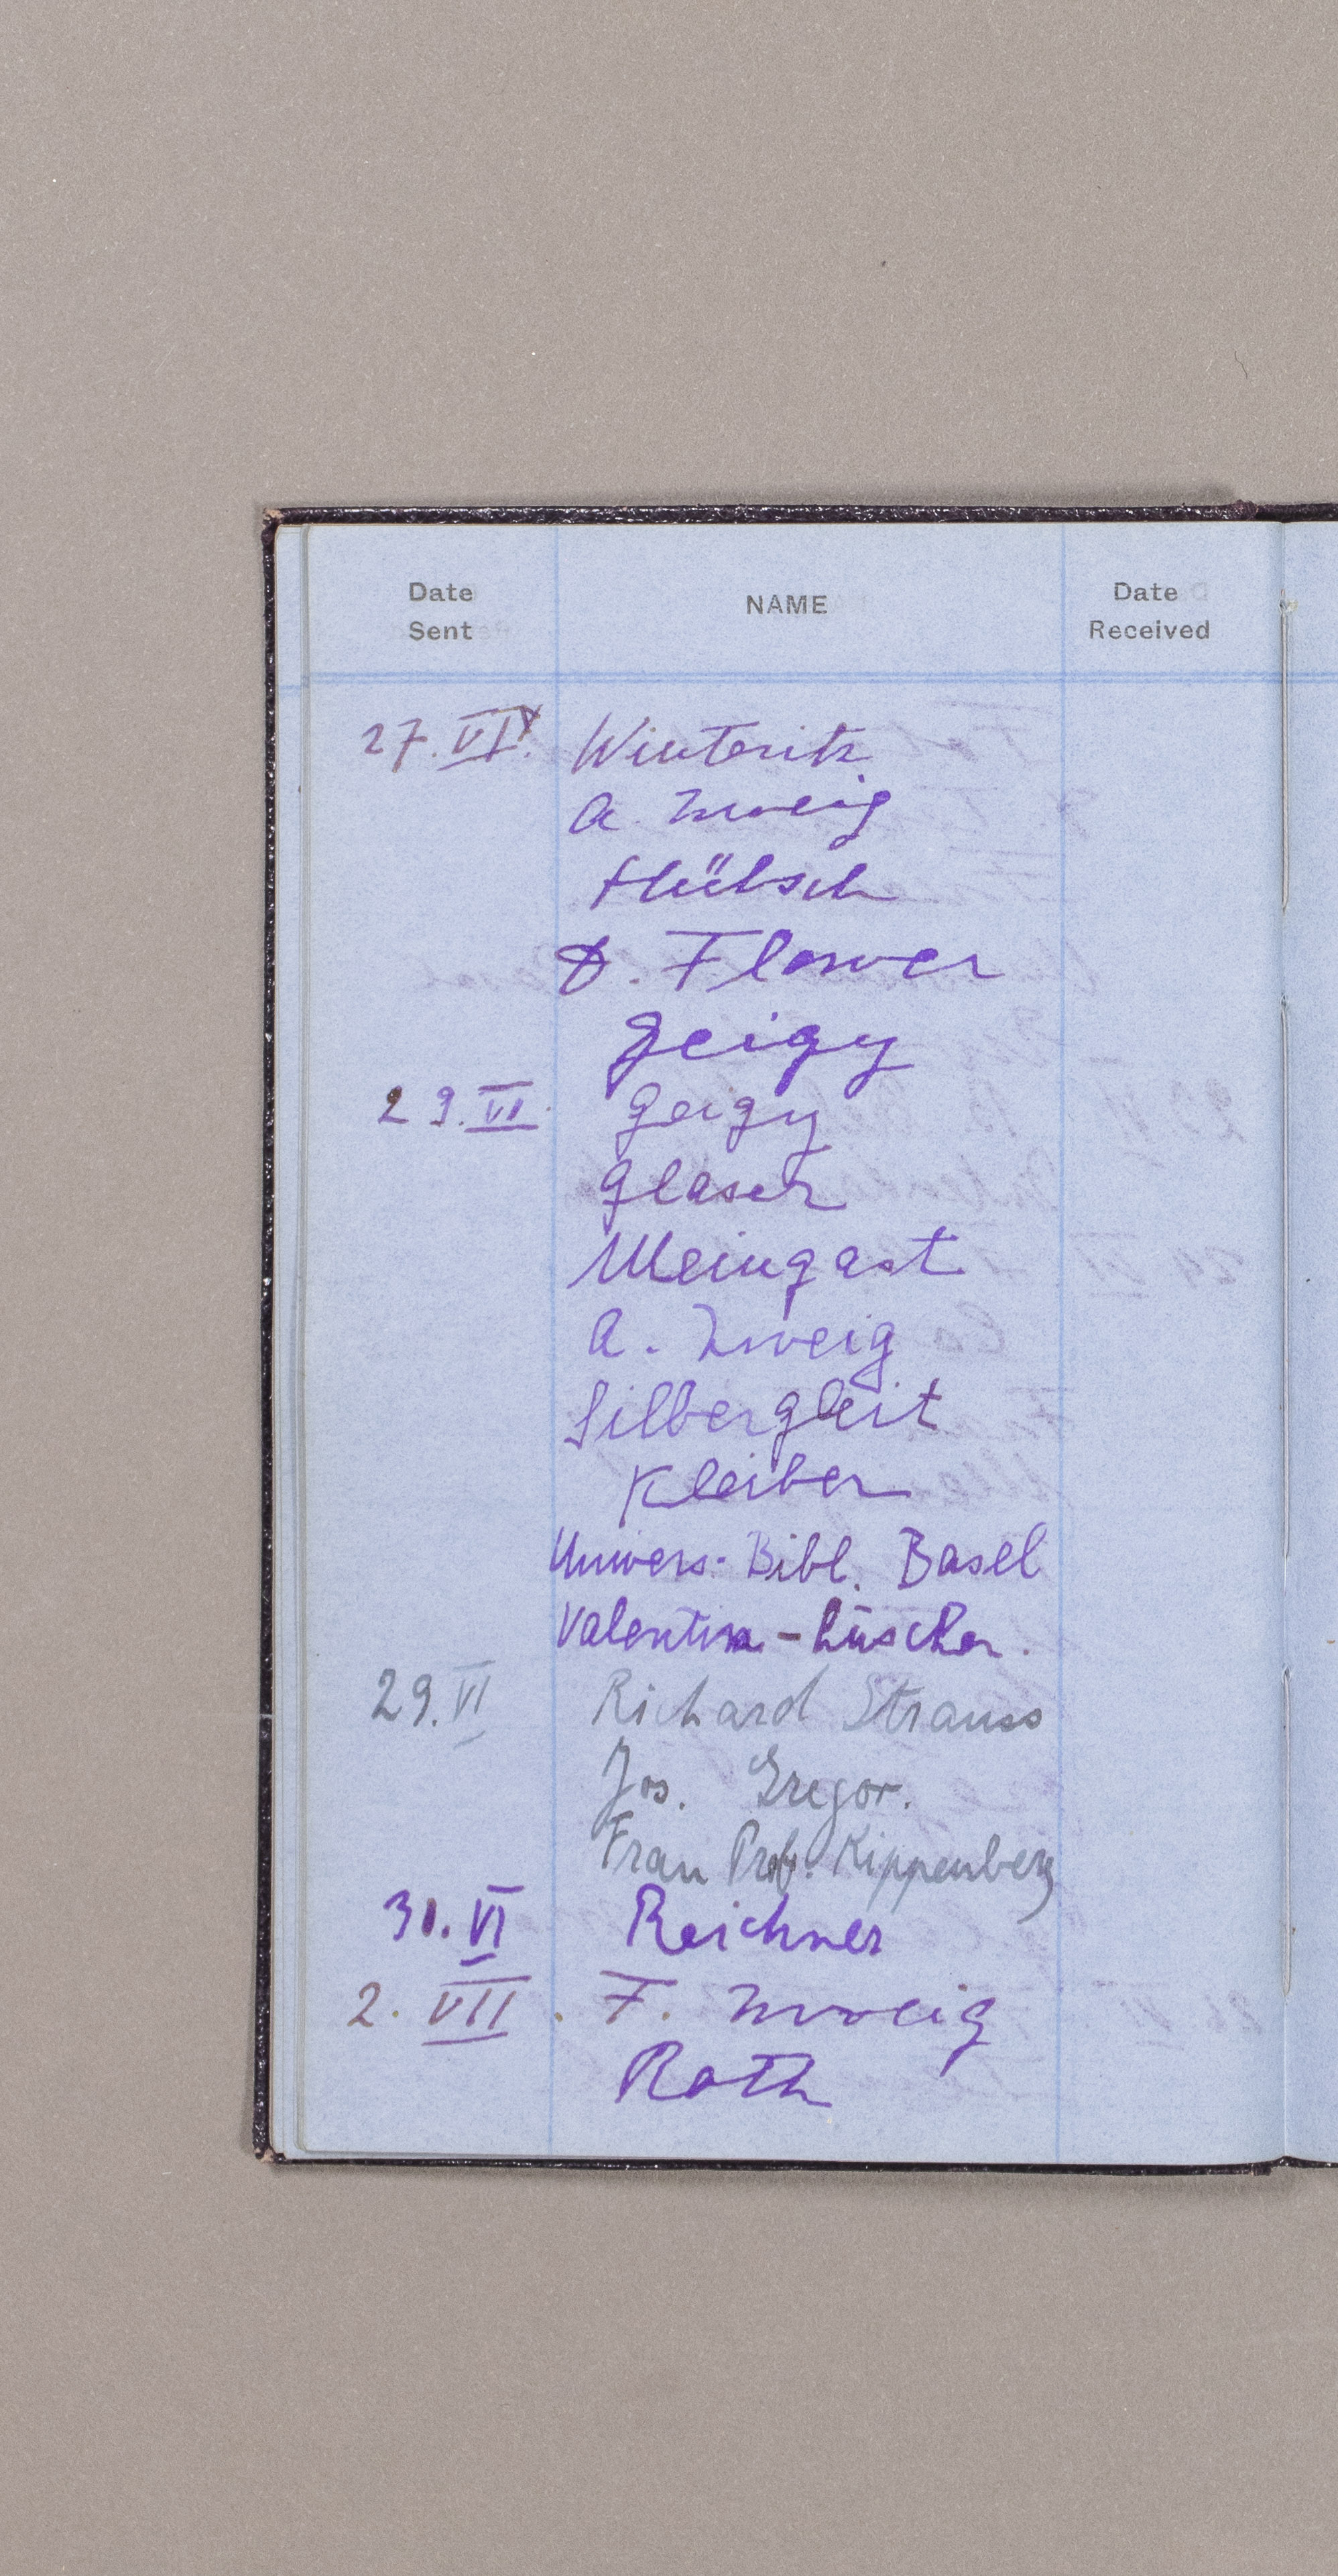 Date Sent NAME Date Received
27. VI. Winternitz
A. Zweig
Hübsch
D. Flower
Geigy
29. VI. Geigy
Glaser
Meingast
A. Zweig
Silbergleit
Kleiber
Univers. Bibl. Basel
Valentin - Lüscher.
29. VI Richard Strauss
Jos. Gregor.
Frau Prof. Kippenberg
30. VI Reichner
2. VII. F. Zweig
Roth